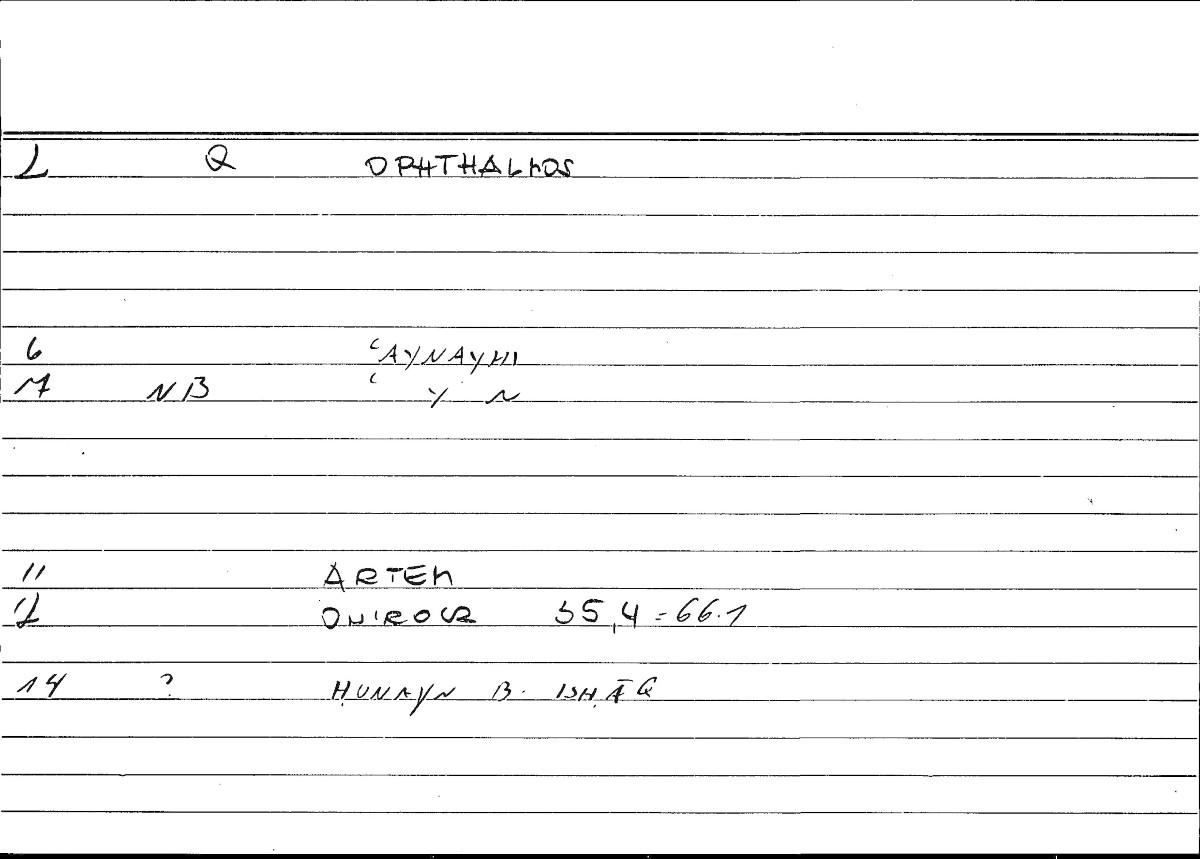 2 Q OPHTHALMOS
6 ʿAYNAYHI
7 NB ʿ Y N
11 ARTEM
12 ONIROCR 35,4 = 66.1
14 ? ḤUNAYN B. ISḤĀQ